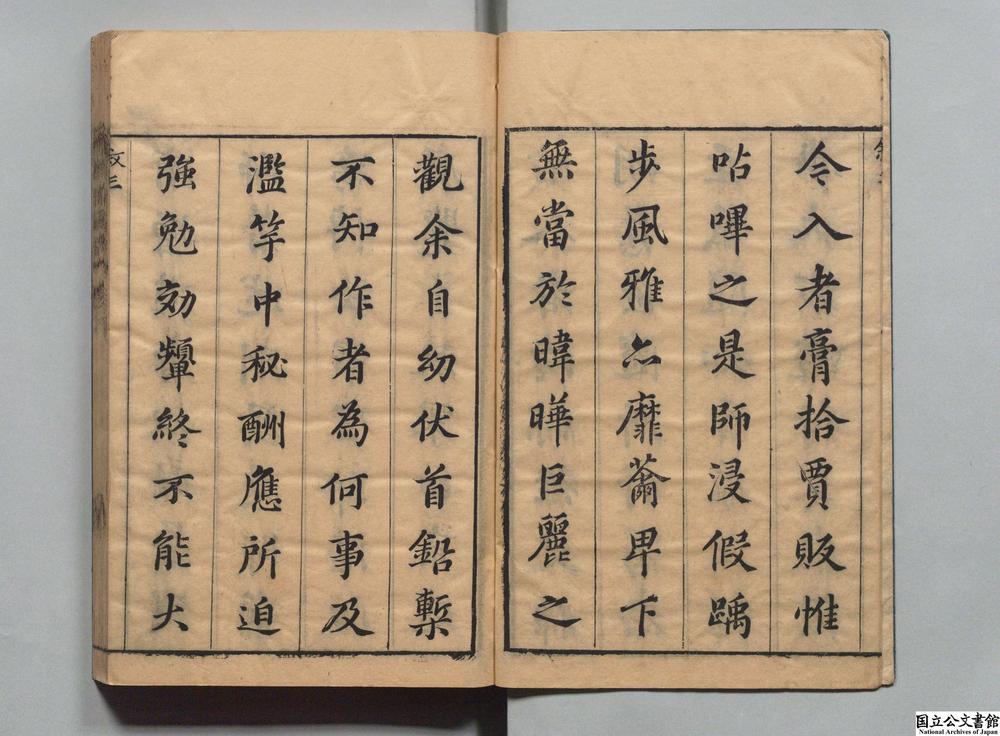 令入者膏拾賈販惟
呫嗶之是師浸假踽
步風雅亦靡薾卑下
無當於暐曄巨麗之
觀余自幼伏首鉛槧
不知作者為何事及
濫竽中秘酬應所迫
強勉効顰終不能大
三
国立公文書館
National Archives of Japan